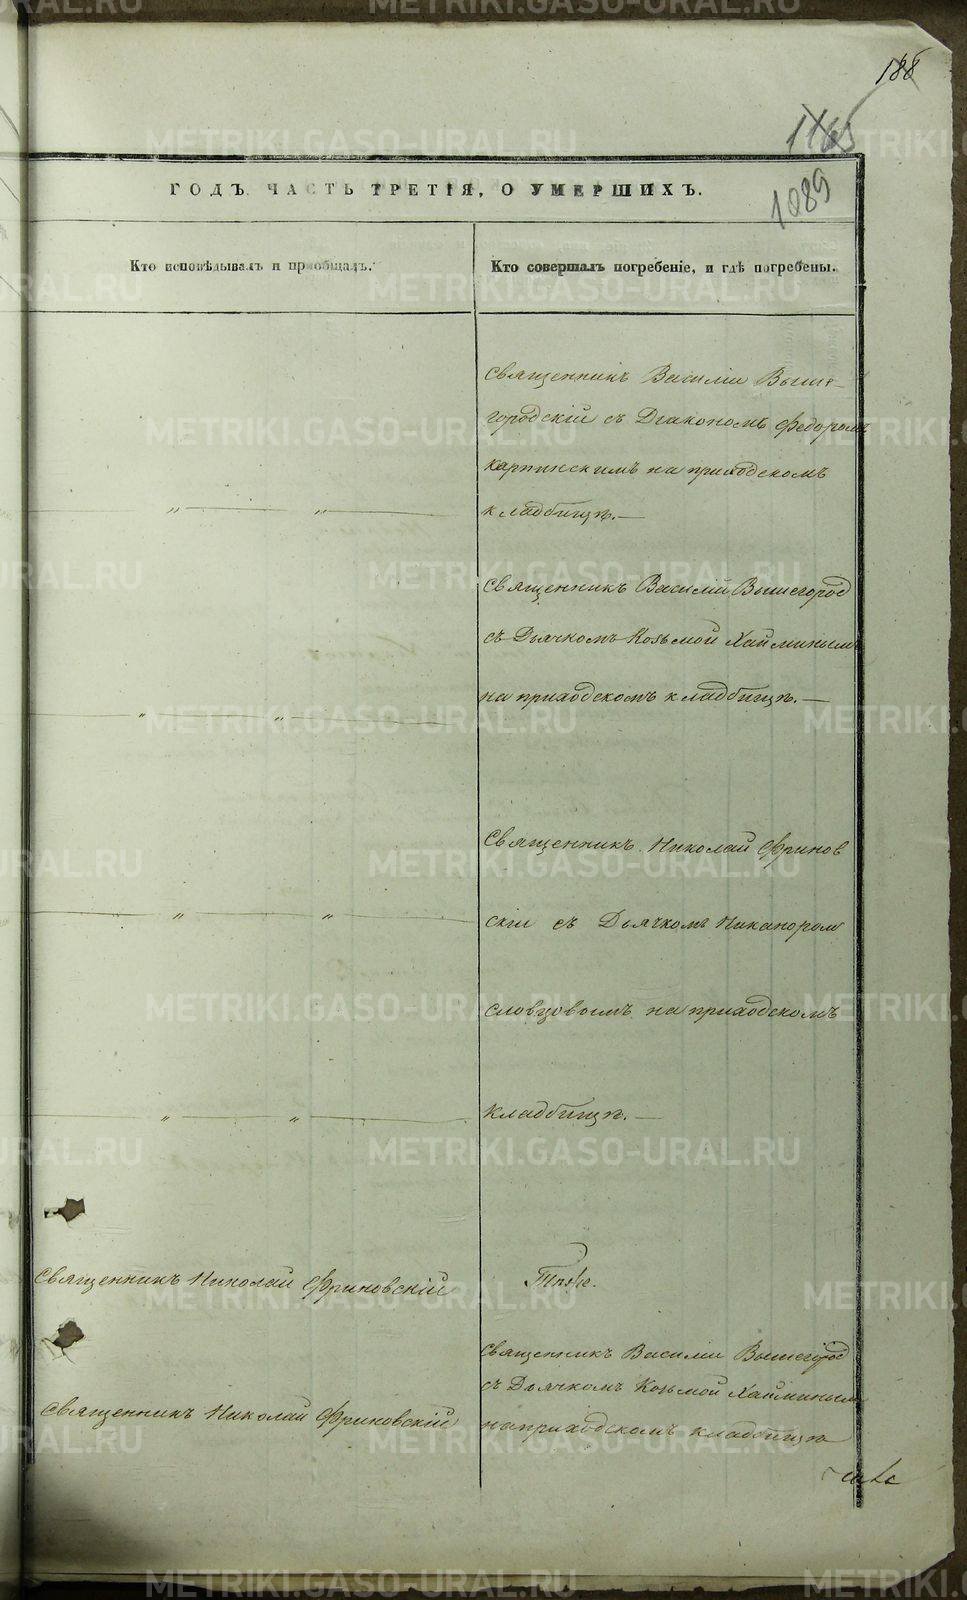 188
1165
1089
ГОДЪ ЧАСТЬ ТРЕТІЯ, О УМЕРШИХЪ.
Кто исповѣдывалъ и приобщалъ.
Кто совершалъ погребеніе, и гдѣ погребены.
Священникъ Василій Выше-
городскій съ Діакономъ Федоромъ
Карпинскимъ на приходскомъ
кладбищѣ.—
Священникъ Василій Вышегород
съ Дьячкомъ Козьмой Хайминымъ
на приходскомъ кладбищѣ.—
Священникъ Николай Фринов
скій съ Дьячкомъ Никаноромъ
Словцовымъ на приходскомъ
кладбищѣ.—
Священникъ Николай Фриновскій
Тѣже.
Священникъ Николай Фриновскій
Священникъ Василій Вышегород
съ Дьячкомъ Козьмой Хайминымъ
на приходскомъ кладбищѣ
METRIKI.GASO-URAL.RU